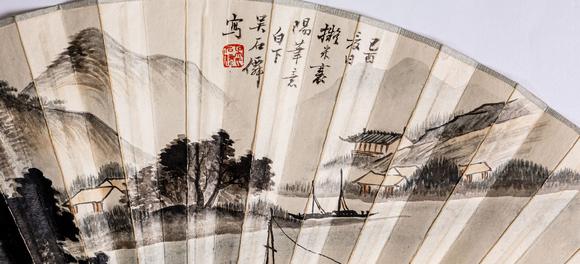 己酉
夏日
擬米襄
陽筆意
白下
吳石僊
寫